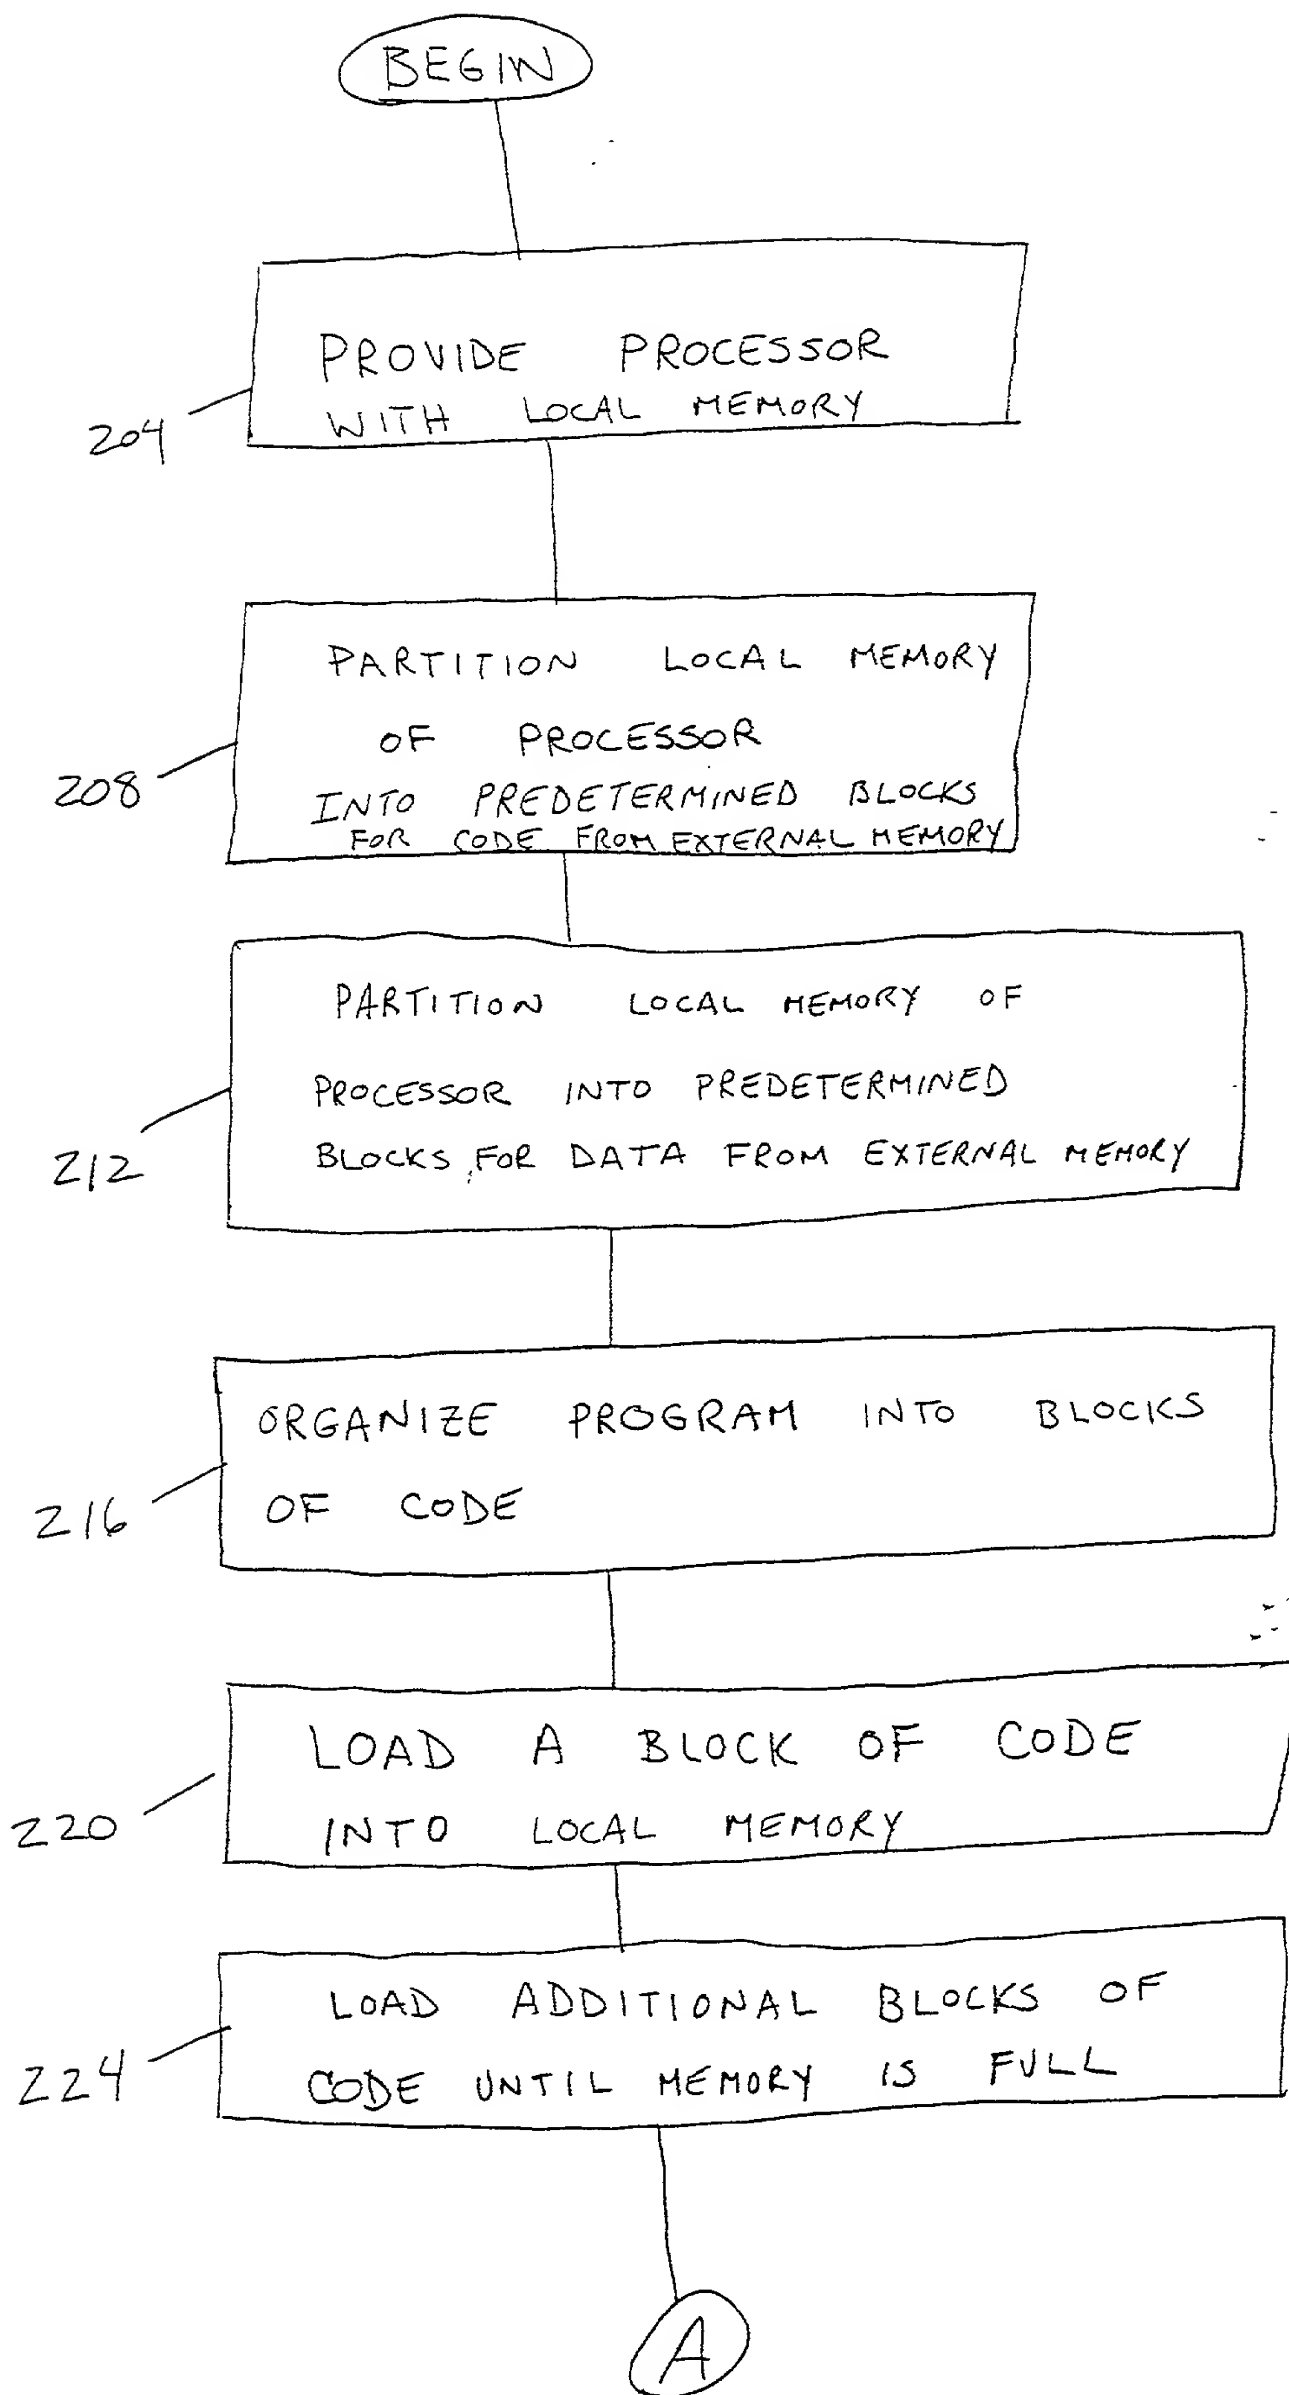 BEGIN
PROVIDE PROCESSOR
WITH LOCAL MEMORY
204
PARTITION LOCAL MEMORY
OF PROCESSOR
INTO PREDETERMINED BLOCKS
FOR CODE FROM EXTERNAL MEMORY
208
PARTITION LOCAL MEMORY OF
PROCESSOR INTO PREDETERMINED
BLOCKS FOR DATA FROM EXTERNAL MEMORY
212
ORGANIZE PROGRAM INTO BLOCKS
OF CODE
216
LOAD A BLOCK OF CODE
INTO LOCAL MEMORY
220
LOAD ADDITIONAL BLOCKS OF
CODE UNTIL MEMORY IS FULL
224
A